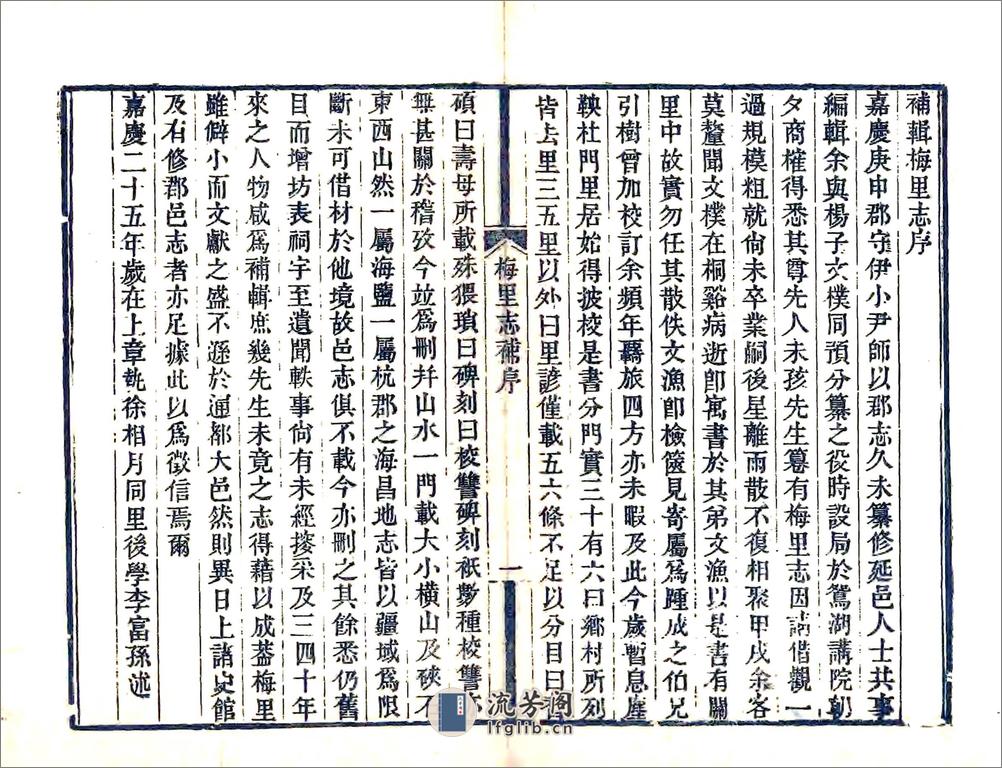 補輯梅里志序
嘉慶庚申郡守伊小尹師以郡志久未纂修延邑人士共事
編輯余與楊子文樸同預分纂之役時設局於鴛湖講院朝
夕商榷得悉其尊先人未孩先生纂有梅里志因請借觀一
過規模粗就尚未卒業嗣後星離雨散不復相聚甲戌余客
莫釐聞文樸在桐谿病逝卽寓書於其弟文漁以是書有關
里中故實勿任其散佚文漁卽檢篋見寄屬爲踵成之伯兄
引樹曾加校訂余頻年羈旅四方亦未暇及此今歲暫息塵
鞅杜門里居始得披校是書分門實三十有六曰鄉村所列
皆去里三五里以外曰里諺僅載五六條不足以分目曰
梅里志補序
一
碩曰壽母所載殊猥瑣曰碑刻曰校讐碑刻祇數種校讐
無甚關於稽攷今並爲刪幷山水一門載大小橫山及硤石
東西山然一屬海鹽一屬杭郡之海昌地志皆以疆域爲限
斷未可借材於他境故邑志俱不載今亦刪之其餘悉仍舊
目而增坊表祠宇至遺聞軼事尚有未經採及三四十年
來之人物咸爲補輯庶幾先生未竟之志得藉以成葢梅里
雖僻小而文獻之盛不遜於通都大邑然則異日上諸史館
及右修郡邑志者亦足據此以爲徵信焉爾
嘉慶二十五年歲在上章執徐相月同里後學李富孫述
流芳阁
lfglib.cn